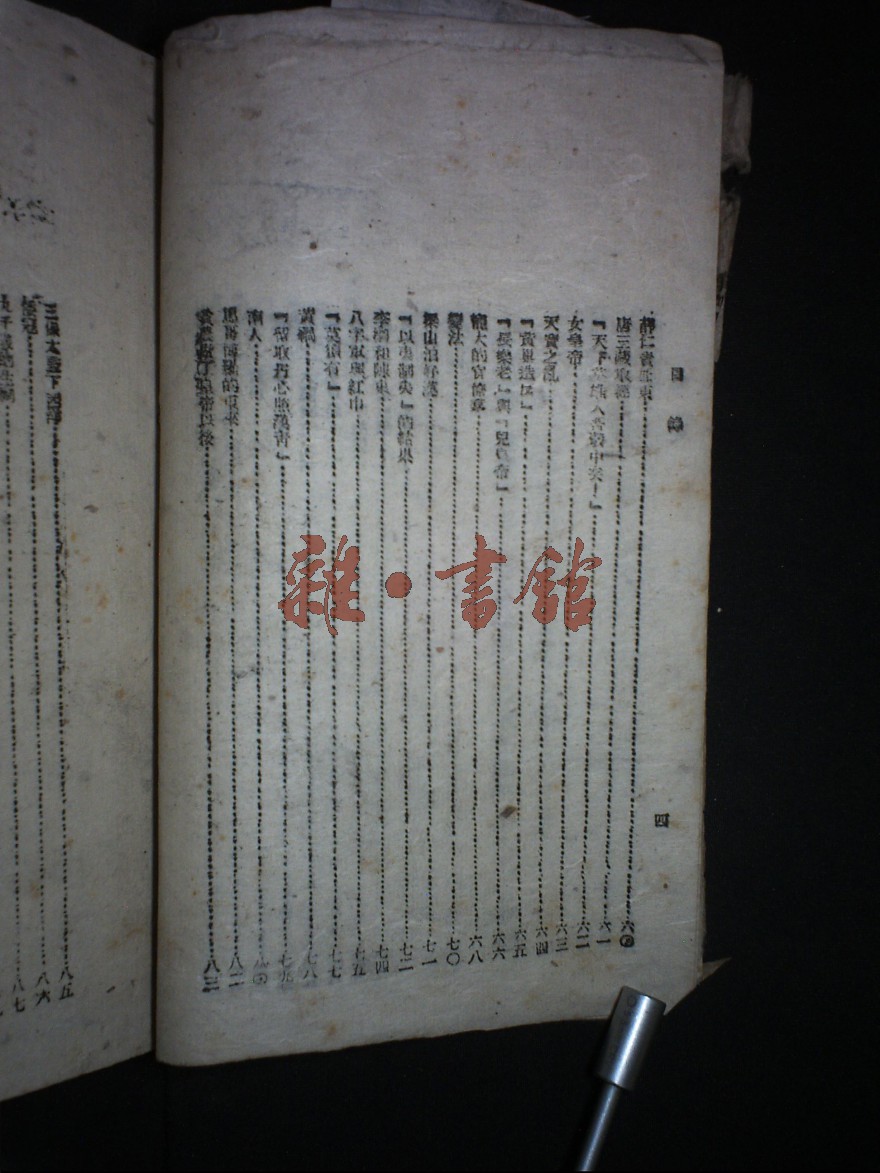 目錄
四
薛仁貴征東 六〇
唐三藏取經 六一
『天下英雄入吾彀中矣!』 六二
女皇帝 六三
天寶之亂 六四
『黃巢造反』 六五
『長樂老』與『兒皇帝』 六六
龐大的官僚羣 六八
變法 七〇
梁山泊好漢 七一
『以夷制夷』的結果 七二
李綱和陳東 七四
八字軍與紅巾 七五
『莫須有』 七七
黃禍 七八
『留取丹心照汗青』 七九
南人 八〇
馬哥博羅的東來 八二
八三
三保太監下西洋 八五
倭寇 八六
八七
雜·書館